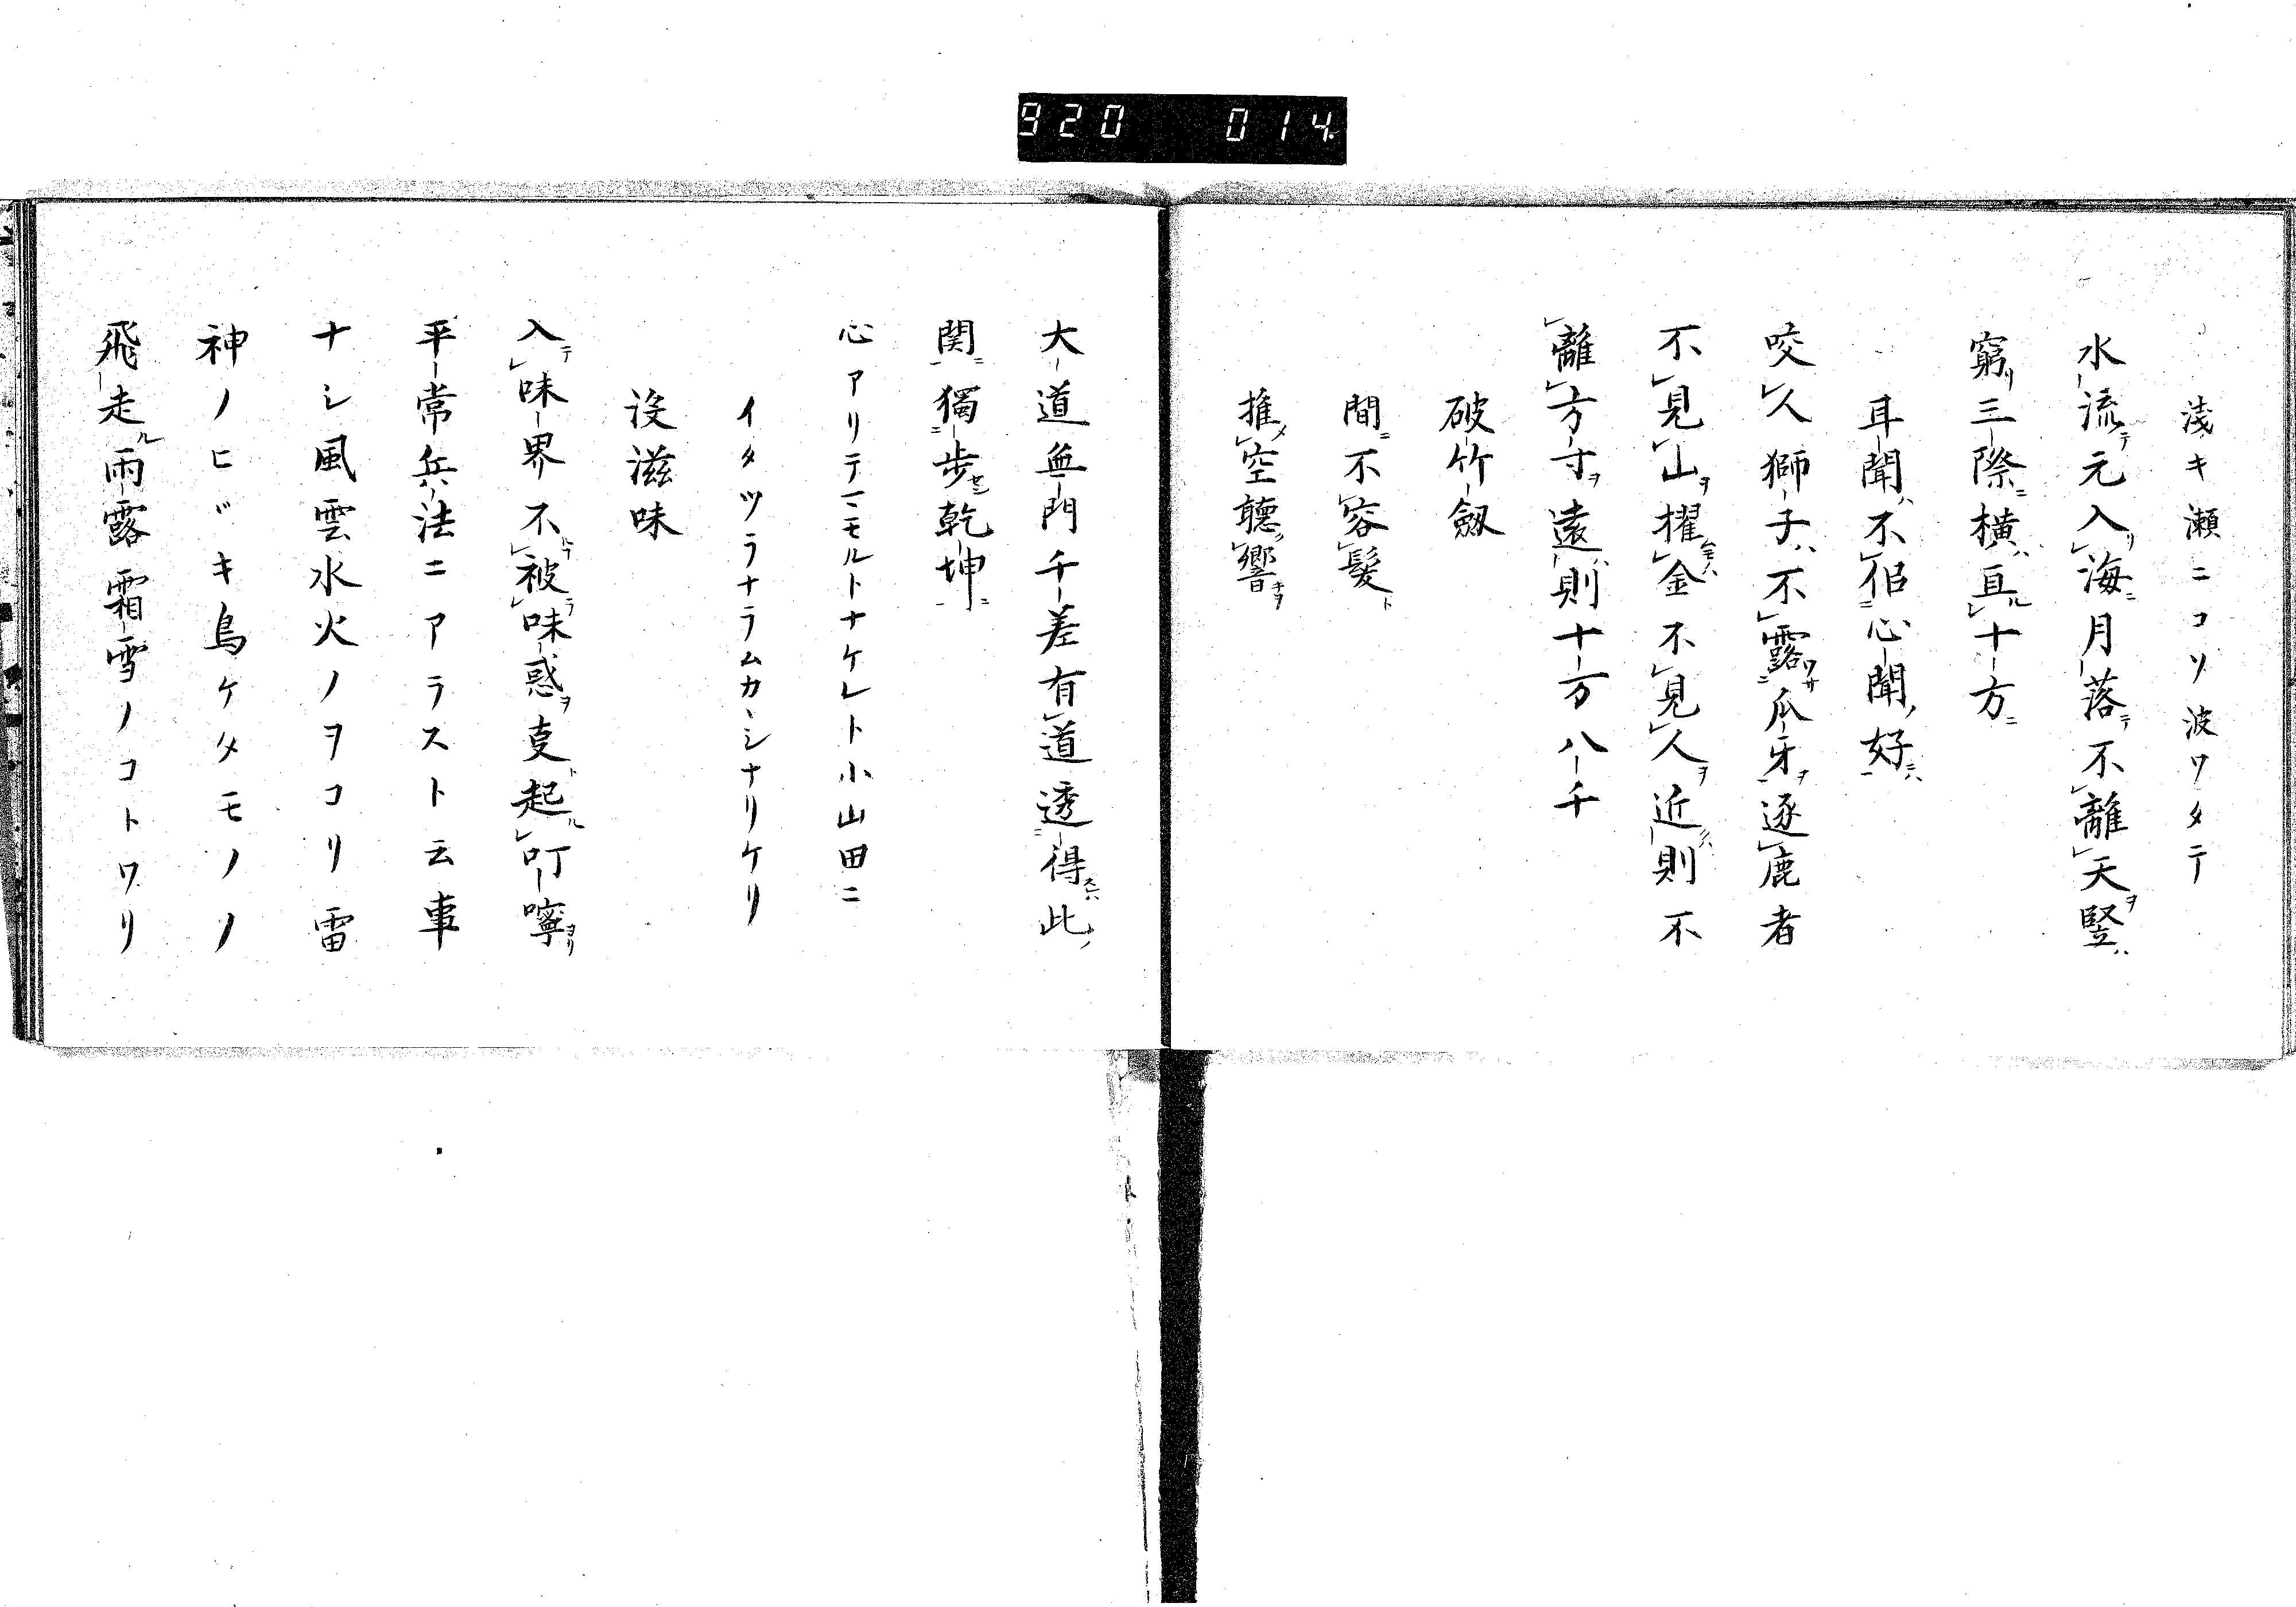 920 014
浅キ瀬ニコソ波ワタテ
水流テ元入リ海ニ月落テ不離天ヲ竪ハ
窮リ三際ニ横ハ亘ル十方ニ
耳聞ハ不佀心聞ノ好ニハ
咬人獅子ハ不露ワサ爪牙ヲ逐鹿者
不見山ヲ擢金不見人ヲ近則不
離方寸ヲ遠ハ則十万八千
破竹劔
間ニ不容髪ト
推メ空聴響キヲ
大道無門千差有道透得此ノ
関ニ獨歩セン乾坤ニ
心アリテモルトナケレト小山田ニ
イタツラナラムカヽシナリケリ
没滋味
入テ味界不被味惑ヲ支起ル叮嚀ヨリ
平常兵法ニアラスト云事
ナシ風雲水火ノヲコリ雷
神ノヒヾキ鳥ケタモノノ
飛走ル雨露霜雪ノコトワリ